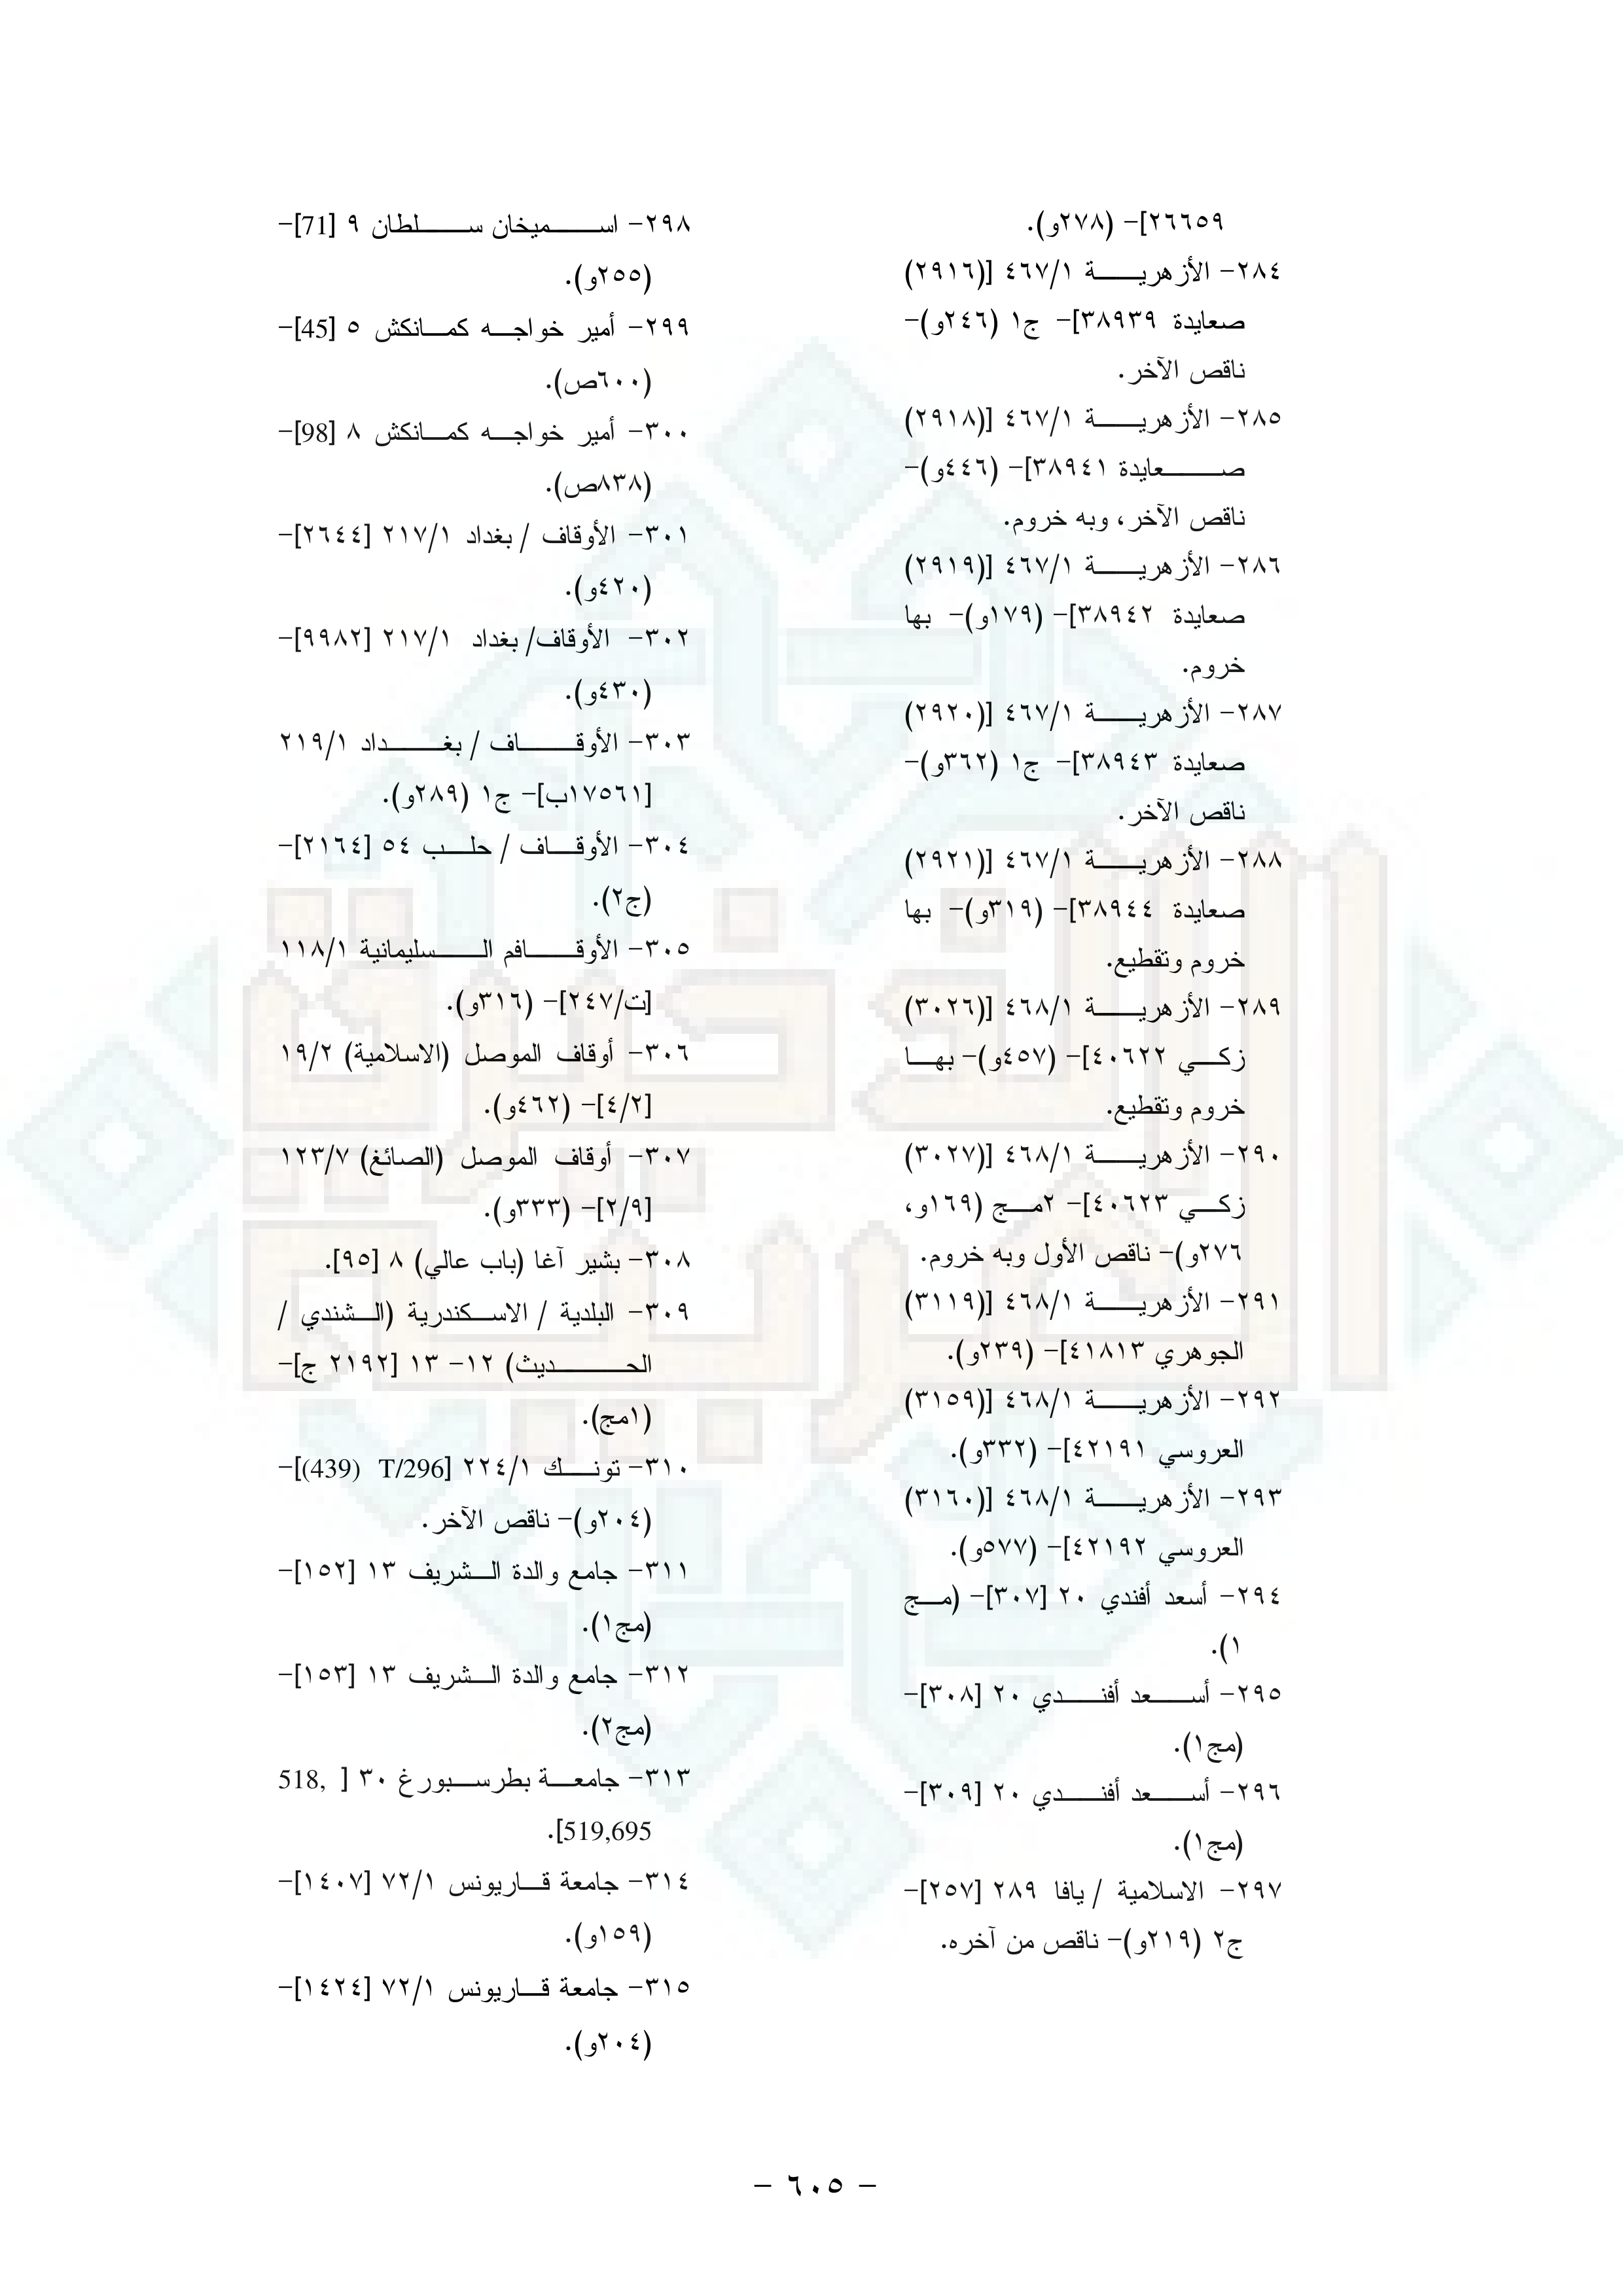 ٢٦٦٥٩]- (٢٧٨و).
٢٨٤- الأزهرية ٤٦٧/١ [(٢٩١٦)
صعايدة ٣٨٩٣٩]- ج١ (٢٤٦و)-
ناقص الآخر.
٢٨٥- الأزهرية ٤٦٧/١ [(٢٩١٨)
صعايدة ٣٨٩٤١]- (٤٤٦و)-
ناقص الآخر، وبه خروم.
٢٨٦- الأزهرية ٤٦٧/١ [(٢٩١٩)
صعايدة ٣٨٩٤٢]- (١٧٩و)- بها
خروم.
٢٨٧- الأزهرية ٤٦٧/١ [(٢٩٢٠)
صعايدة ٣٨٩٤٣]- ج١ (٣٦٢و)-
ناقص الآخر.
٢٨٨- الأزهرية ٤٦٧/١ [(٢٩٢١)
صعايدة ٣٨٩٤٤]- (٣١٩و)- بها
خروم وتقطيع.
٢٨٩- الأزهرية ٤٦٨/١ [(٣٠٢٦)
زكي ٤٠٦٢٢]- (٤٥٧و)- بها
خروم وتقطيع.
٢٩٠- الأزهرية ٤٦٨/١ [(٣٠٢٧)
زكي ٤٠٦٢٣]- ٢مج (١٦٩و،
٢٧٦و)- ناقص الأول وبه خروم.
٢٩١- الأزهرية ٤٦٨/١ [(٣١١٩)
الجوهري ٤١٨١٣]- (٢٣٩و).
٢٩٢- الأزهرية ٤٦٨/١ [(٣١٥٩)
العروسي ٤٢١٩١]- (٣٣٢و).
٢٩٣- الأزهرية ٤٦٨/١ [(٣١٦٠)
العروسي ٤٢١٩٢]- (٥٧٧و).
٢٩٤- أسعد أفندي ٢٠ [٣٠٧]- (مج
١).
٢٩٥- أسعد أفندي ٢٠ [٣٠٨]-
(مج١).
٢٩٦- أسعد أفندي ٢٠ [٣٠٩]-
(مج١).
٢٩٧- الاسلامية / يافا ٢٨٩ [٢٥٧]-
ج٢ (٢١٩و)- ناقص من آخره.
٢٩٨- اسميخان سلطان ٩ [71]-
(٢٥٥و).
٢٩٩- أمير خواجه كمانكش ٥ [45]-
(٦٠٠ص).
٣٠٠- أمير خواجه كمانكش ٨ [98]-
(٨٣٨ص).
٣٠١- الأوقاف / بغداد ٢١٧/١ [٢٦٤٤]-
(٤٢٠و).
٣٠٢- الأوقاف/ بغداد ٢١٧/١ [٩٩٨٢]-
(٤٣٠و).
٣٠٣- الأوقاف / بغداد ٢١٩/١
[١٧٥٦١ب]- ج١ (٢٨٩و).
٣٠٤- الأوقاف / حلب ٥٤ [٢١٦٤]-
(ج٢).
٣٠٥- الأوقافم السليمانية ١١٨/١
[ت/٢٤٧]- (٣١٦و).
٣٠٦- أوقاف الموصل (الاسلامية) ١٩/٢
[٤/٢]- (٤٦٢و).
٣٠٧- أوقاف الموصل (الصائغ) ١٢٣/٧
[٢/٩]- (٣٣٣و).
٣٠٨- بشير آغا (باب عالي) ٨ [٩٥].
٣٠٩- البلدية / الاسكندرية (الشندي /
الحديث) ١٢- ١٣ [٢١٩٢ ج]-
(١مج).
٣١٠- تونك ٢٢٤/١ [T/296 (439)]-
(٢٠٤و)- ناقص الآخر.
٣١١- جامع والدة الشريف ١٣ [١٥٢]-
(مج١).
٣١٢- جامع والدة الشريف ١٣ [١٥٣]-
(مج٢).
٣١٣- جامعة بطرسبورغ ٣٠ [ 518,
519,695].
٣١٤- جامعة قاريونس ٧٢/١ [١٤٠٧]-
(١٥٩و).
٣١٥- جامعة قاريونس ٧٢/١ [١٤٢٤]-
(٢٠٤و).
- ٦٠٥ -